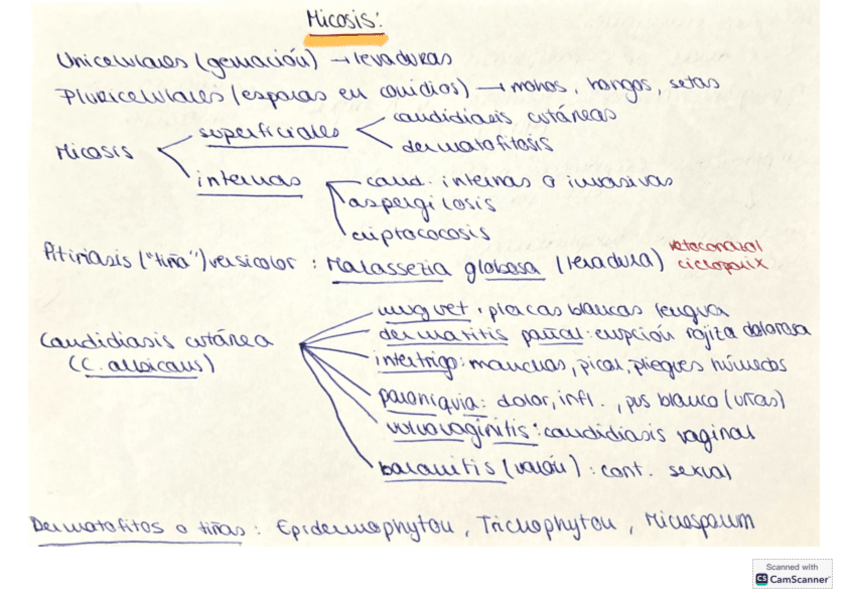 Micosis:
Unicelulares (gemación) → levaduras
Pluricelulares (esporas en conidios) → mohos, hongos, setas
Micosis
superficiales
candidiasis cutáneas
dermatofitosis
internas
cand. internas o invasivas
aspergilosis
criptococosis
Pitiriasis ("tiña") versicolor : Malassezia globosa (levadura) ketoconazol
ciclopirix
Candidiasis cutánea
(C. albicans)
muguet : placas blancas lengua
dermatitis pañal : erupción rojiza dolorosa
intertrigo : manchas, picor, pliegues húmedos
paroniquia : dolor, infl. , pus blanco (uñas)
vulvovaginitis : candidiasis vaginal
balanitis (varón) : cont. sexual
Dermatofitos o tiñas : Epidermophyton, Trichophyton, Microsporum
Scanned with
CS CamScanner